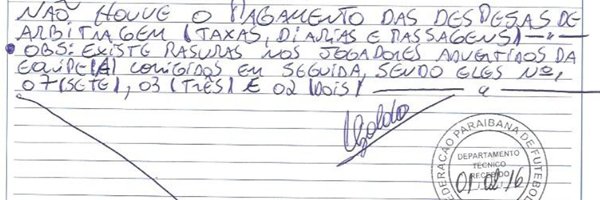 NÃO HOUVE O PAGAMENTO DAS DESPESAS DE
ARBITRAGEM (TAXAS, DIARIAS E PASSAGENS)
OBS: EXISTE RASURAS NOS JOGADORES ADVERTIDOS DA
EQUIPE (A) CORRIGIDOS EM SEGUIDA, SENDO ELES Nº,
07 (SETE), 03 (TRÊS) E 02 (DOIS)
FEDERAÇÃO PARAIBANA DE FUTEBOL
DEPARTAMENTO
TÉCNICO
RECEBIDO
01/02/16